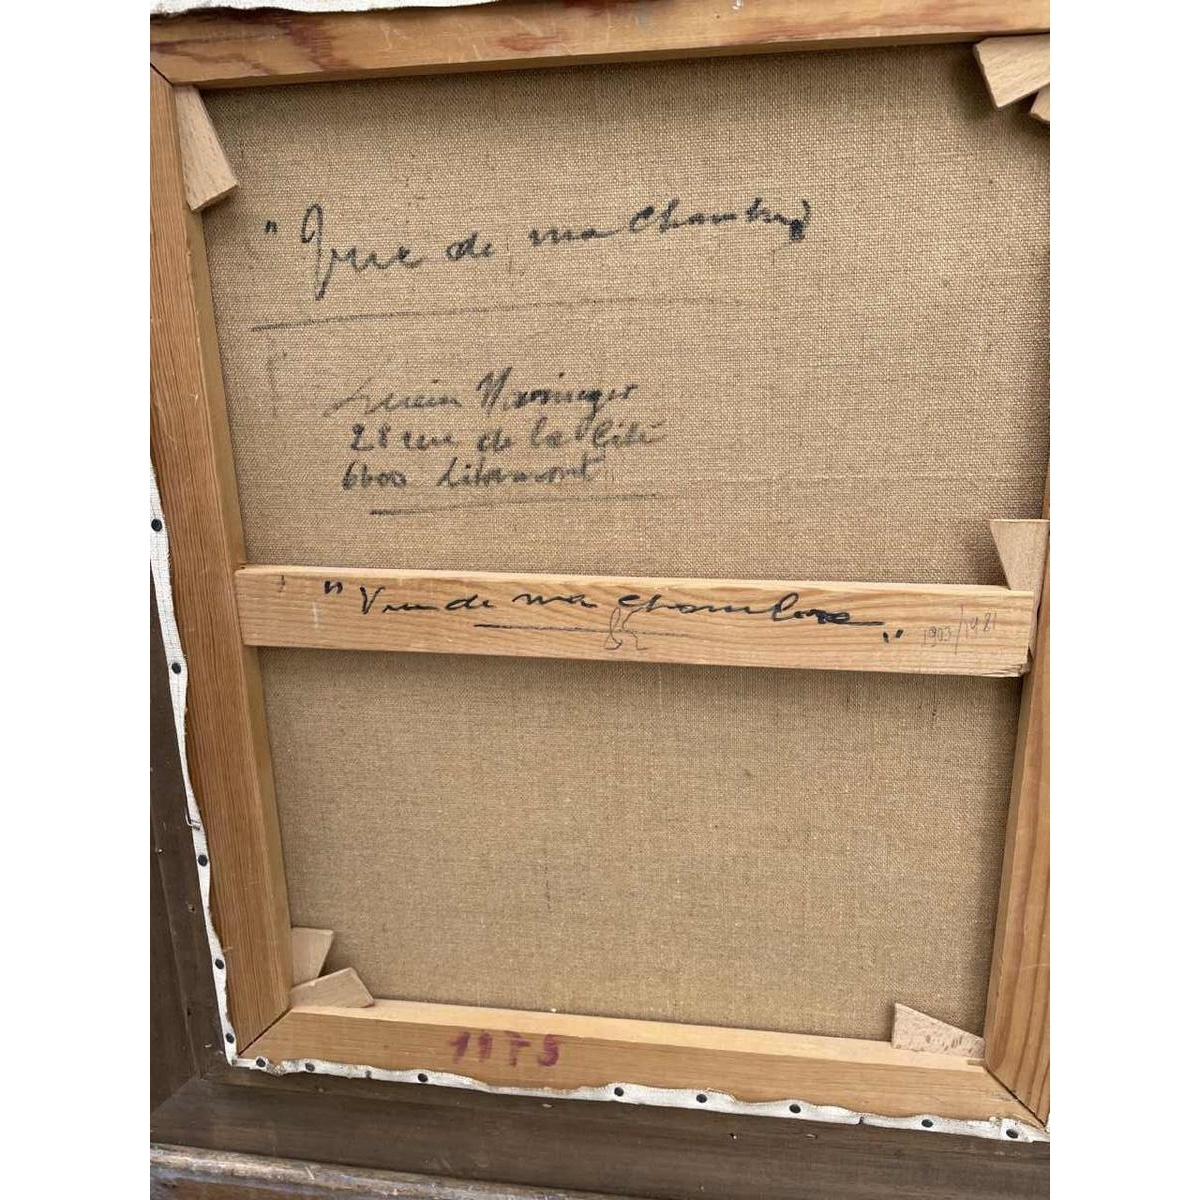 " Vue de ma chambre
Lucien
28 rue de la Cité
6600 Libramont
" Vue de ma chambre "
1903/1981
1975